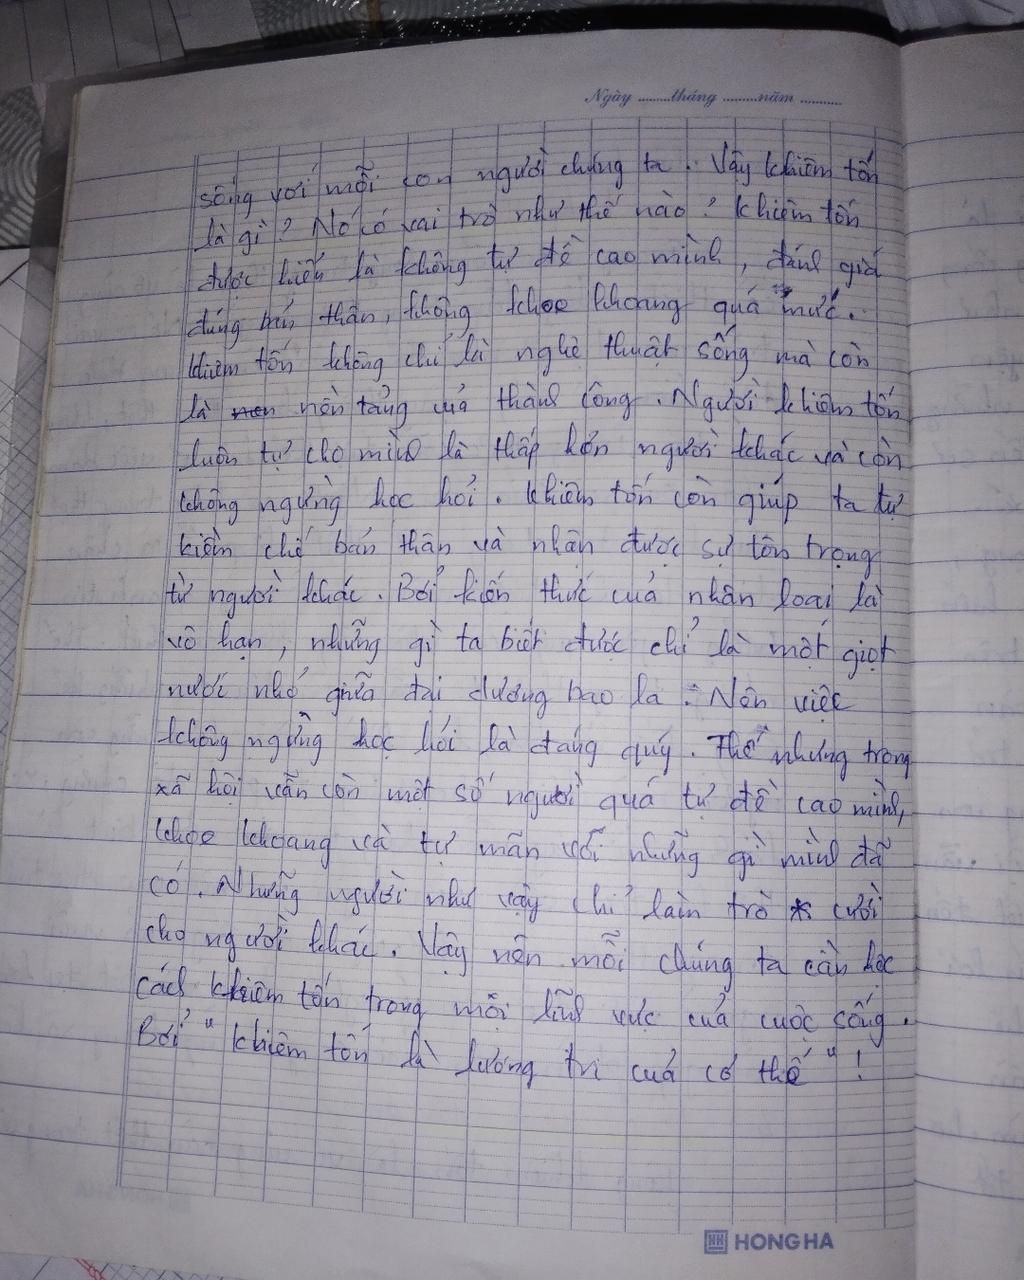 Ngày ........tháng ........năm ..........
sống với mỗi con người chúng ta. Vậy khiêm tốn
là gì? Nó có vai trò như thế nào? Khiêm tốn
được hiểu là không tự đề cao mình, đánh giá
đúng bản thân, không khoe khoang quá mức.
Khiêm tốn không chỉ là nghệ thuật sống mà còn
là nền tảng của thành công. Người khiêm tốn
luôn tự cho mình là thấp hơn người khác và còn
không ngừng học hỏi. Khiêm tốn còn giúp ta tự
kiềm chế bản thân và nhận được sự tôn trọng
từ người khác. Bởi kiến thức của nhân loại là
vô hạn, những gì ta biết được chỉ là một giọt
nước nhỏ giữa đại dương bao la. Nên việc
không ngừng học hỏi là đáng quý. Thế nhưng trong
xã hội vẫn còn một số người quá tự đề cao mình,
khoe khoang và tự mãn với những gì mình đã
có. Những người như vậy chỉ làm trò cười
cho người khác. Vậy nên mỗi chúng ta cần học
cách khiêm tốn trong mọi lĩnh vực của cuộc sống.
Bởi "khiêm tốn là lương tri của cơ thể"!
HONG HA